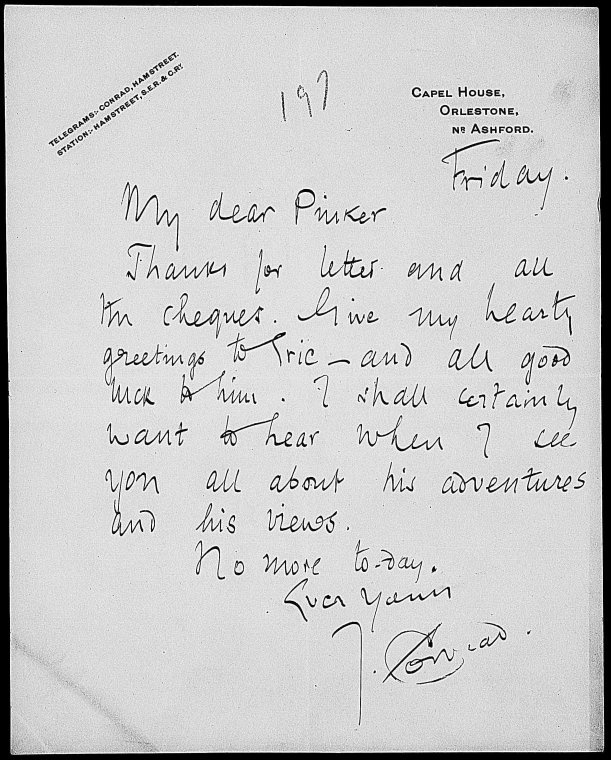 TELEGRAMS:- CONRAD, HAMSTREET.
STATION:- HAMSTREET, S.E.R. & C.RY.
197
CAPEL HOUSE,
ORLESTONE,
NR ASHFORD.
Friday.
My dear Pinker
Thanks for letter and all
the cheques. Give my hearty
greetings to Eric – and all good
luck to him. I shall certainly
want to hear when I see
you all about his adventures
and his views.
No more to-day.
Ever Yours
J. Conrad.